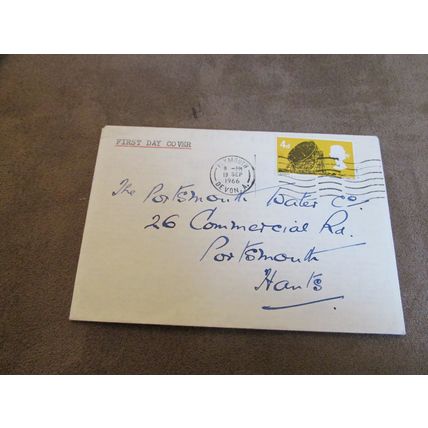 FIRST DAY COVER
PLYMOUTH
19 SEP
1966
DEVON. A.
4d
The Portsmouth Water Co.
26 Commercial Rd.
Portsmouth
Hants